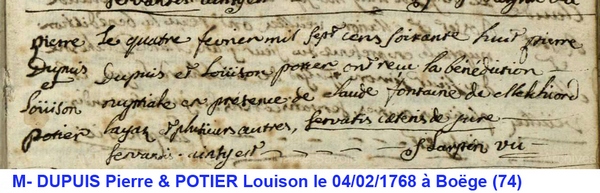 servandis uti jus est
pierre le quatre fevrier mil sept cens soixante huit pierre
Dupuis Dupuis et Loüison potier ont reçu la bénédiction
Loüison nuptiale en presence de claude fontaine de Melchiord
potier layat & plusieurs autres, servatis cæteris de jure
servand: uti jus est
vic:
M- DUPUIS Pierre & POTIER Louison le 04/02/1768 à Boëge (74)